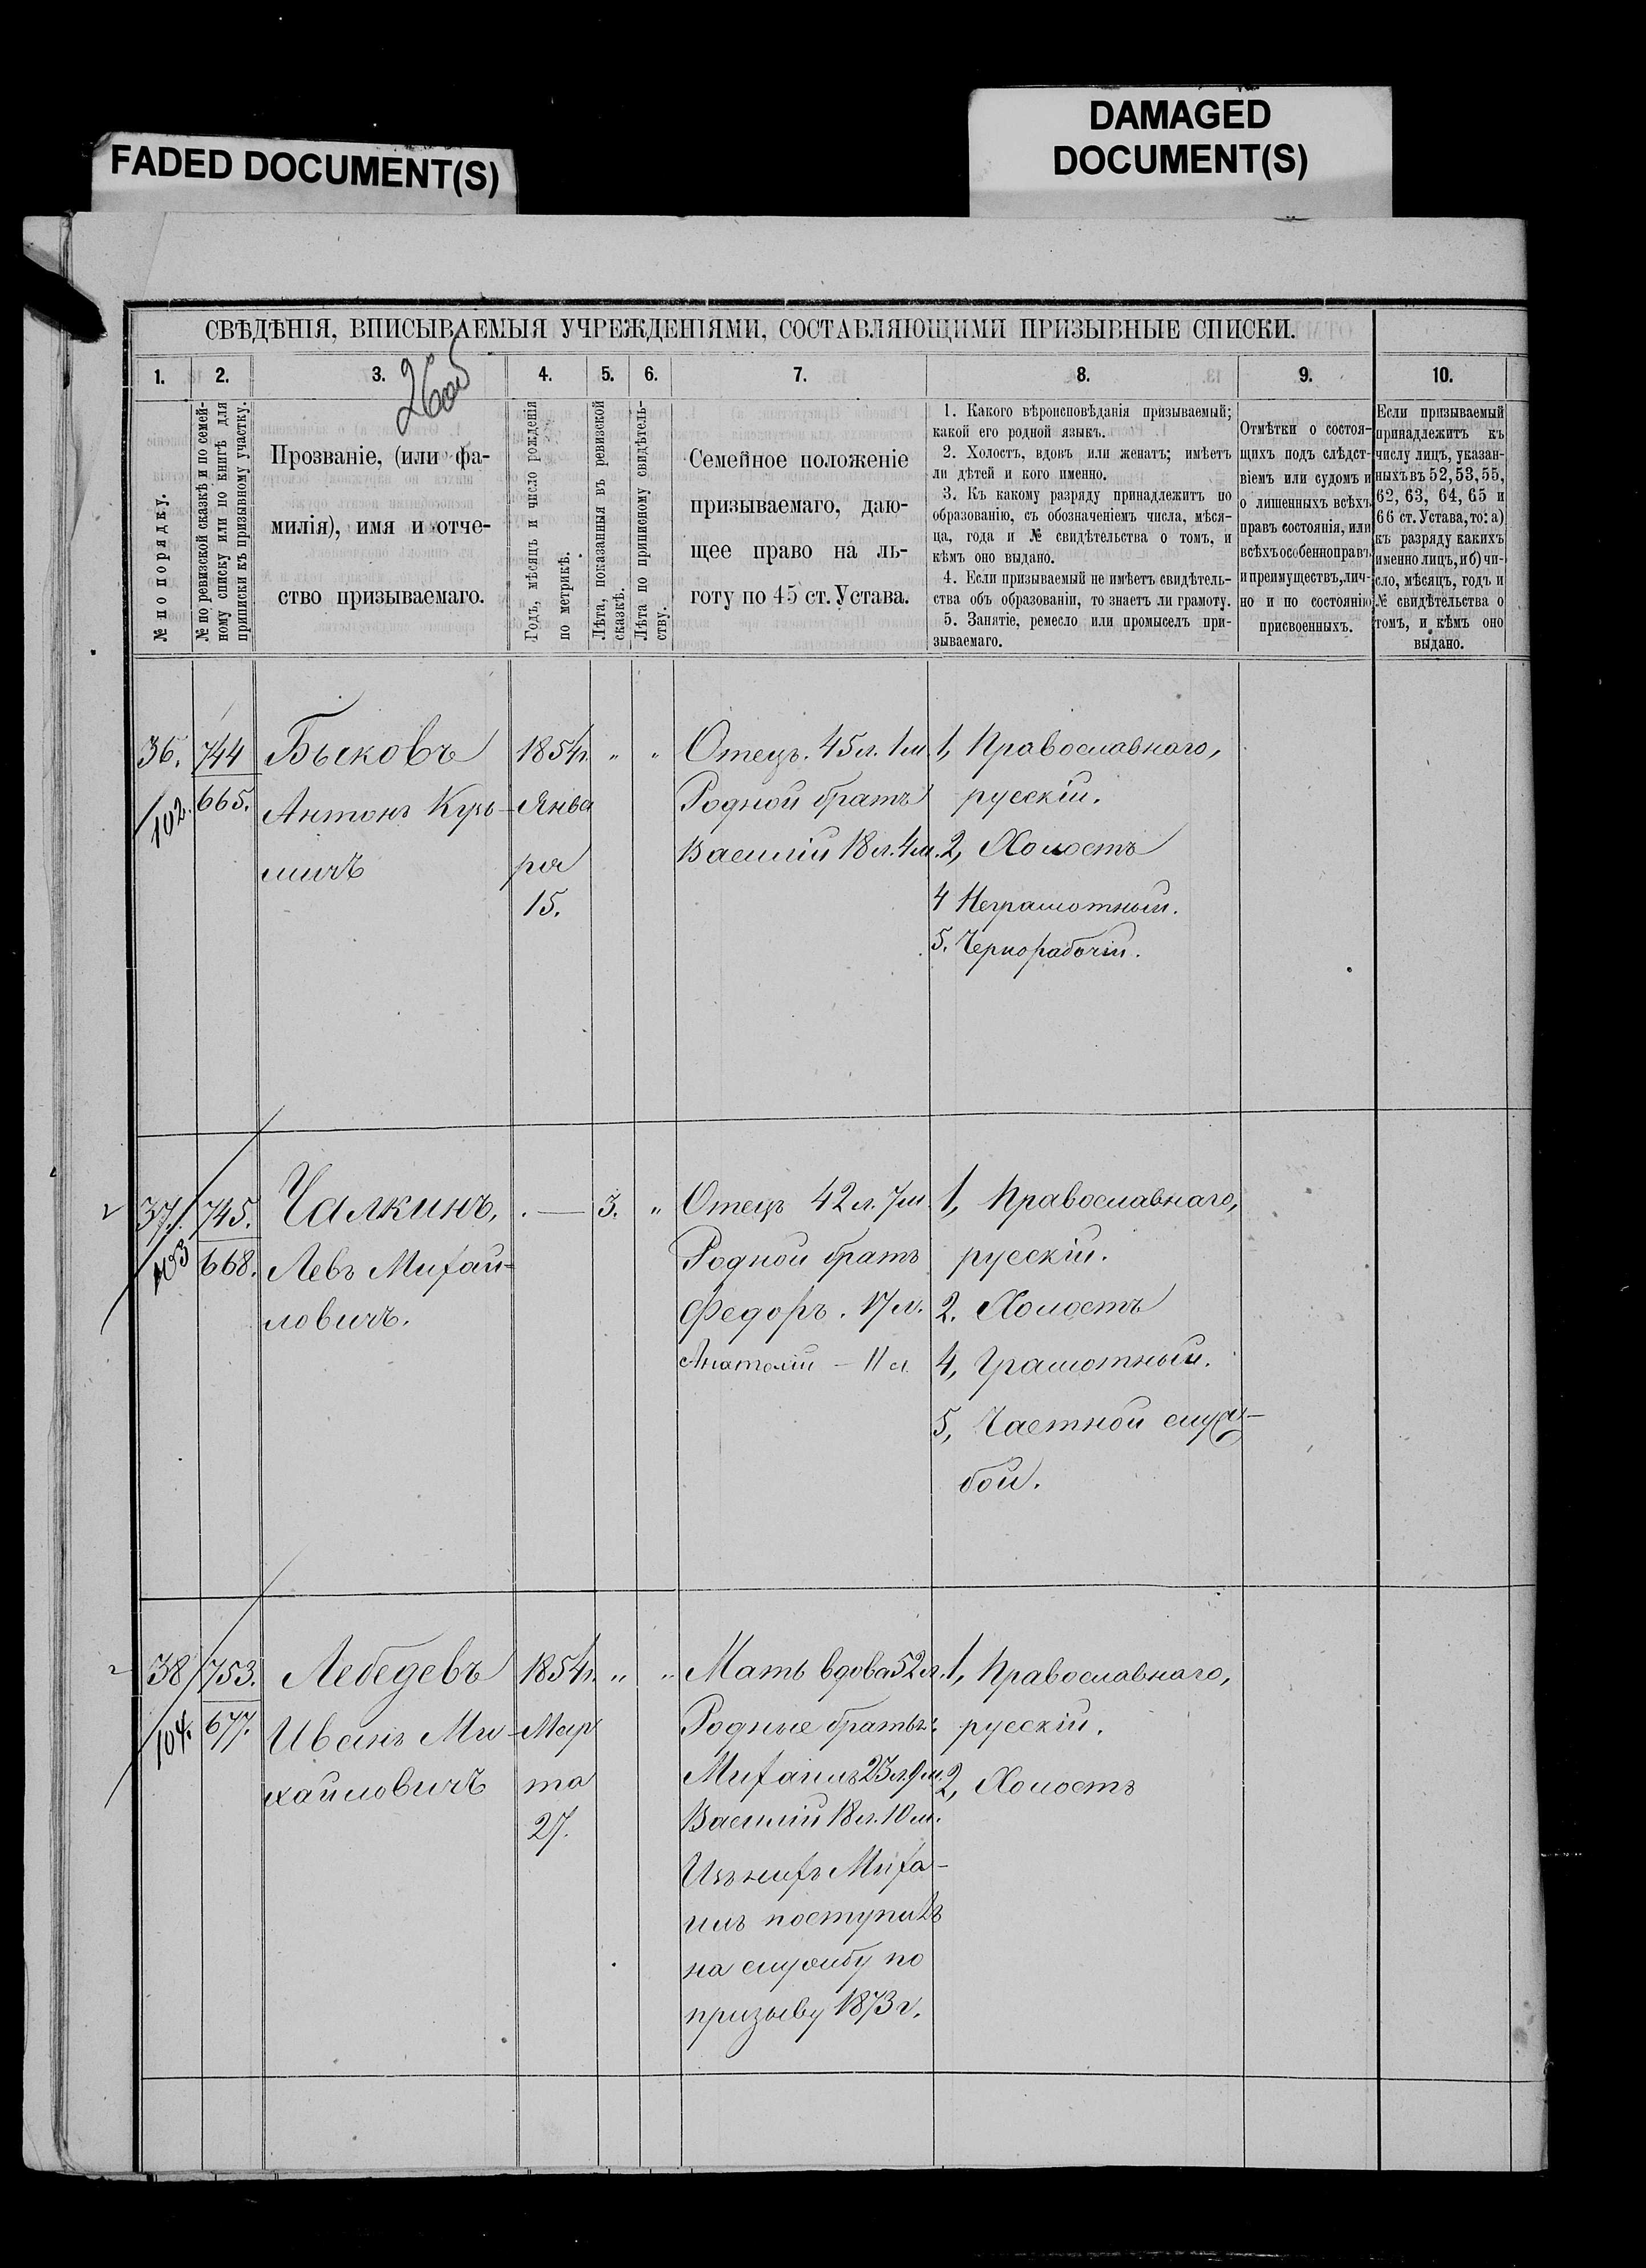 FADED DOCUMENT(S)
DAMAGED
DOCUMENT(S)
СВѢДѢНІЯ, ВПИСЫВАЕМЫЯ УЧРЕЖДЕНІЯМИ, СОСТАВЛЯЮЩИМИ ПРИЗЫВНЫЕ СПИСКИ.
26об
1.
2.
3.
4.
5.
6.
7.
8.
9.
10.
№ по порядку.
№ по ревизской сказкѣ и по семей-
ному списку или по книгѣ для
приписки къ призывному участку.
Прозваніе, (или фа-
милія), имя и отче-
ство призываемаго.
Годъ, мѣсяцъ и число рожденія
по метрикѣ.
Лѣта, показанныя въ ревизской
сказкѣ.
Лѣта по приписному свидѣтель-
ству.
Семейное положеніе
призываемаго, даю-
щее право на ль-
готу по 45 ст. Устава.
1. Какого вѣроисповѣданія призываемый;
какой его родной языкъ.
2. Холостъ, вдовъ или женатъ; имѣетъ
ли дѣтей и кого именно.
3. Къ какому разряду принадлежитъ по
образованію, съ обозначеніемъ числа, мѣся-
ца, года и № свидѣтельства о томъ, и
кѣмъ оно выдано.
4. Если призываемый не имѣетъ свидѣтель-
ства объ образованіи, то знаетъ ли грамоту.
5. Занятіе, ремесло или промыселъ при-
зываемаго.
Отмѣтки о состоя-
щихъ подъ слѣдст-
віемъ или судомъ и
о лишенныхъ всѣхъ
правъ состоянія, или
всѣхъ особенно правъ
и преимуществъ, лич-
но и по состоянію
присвоенныхъ.
Если призываемый
принадлежитъ къ
числу лицъ, указан-
ныхъ въ 52, 53, 55,
62, 63, 64, 65 и
66 ст. Устава, то: а)
къ разряду какихъ
именно лицъ, и б) чи-
сло, мѣсяцъ, годъ и
№ свидѣтельства о
томъ, и кѣмъ оно
выдано.
36.
102.
744
665.
Быковъ
Антонъ Кузь-
мичъ
1854г.
Янва
ря
15.
" "
Отецъ. 45л. 1м.
Родной братъ
Василій 18л. 4м.
1, Православнаго,
русскій.
2, Холостъ
4 Неграмотный.
5. Чернорабочій.
37.
103
745.
668.
Чалкинъ,
Левъ Михай-
ловичъ.
. —
3.
"
Отецъ 42 л. 7м
Родной братъ
Федоръ. 17 л.
Анатолій – 11 л
1, Православнаго,
русскій.
2. Холостъ
4, Грамотный.
5, Частной служ-
бой.
38
104.
753.
677.
Лебедевъ
Иванъ Ми-
хайловичъ
1854г.
Мар
та
27.
" "
Мать вдова 52л.
Родные братья:
Михаилъ 23л. 9м.
Василій 18л. 10м.
Изъ нихъ Миха-
илъ поступилъ
на службу по
призыву 1873 г.
1, Православнаго,
русскій.
2, Холостъ